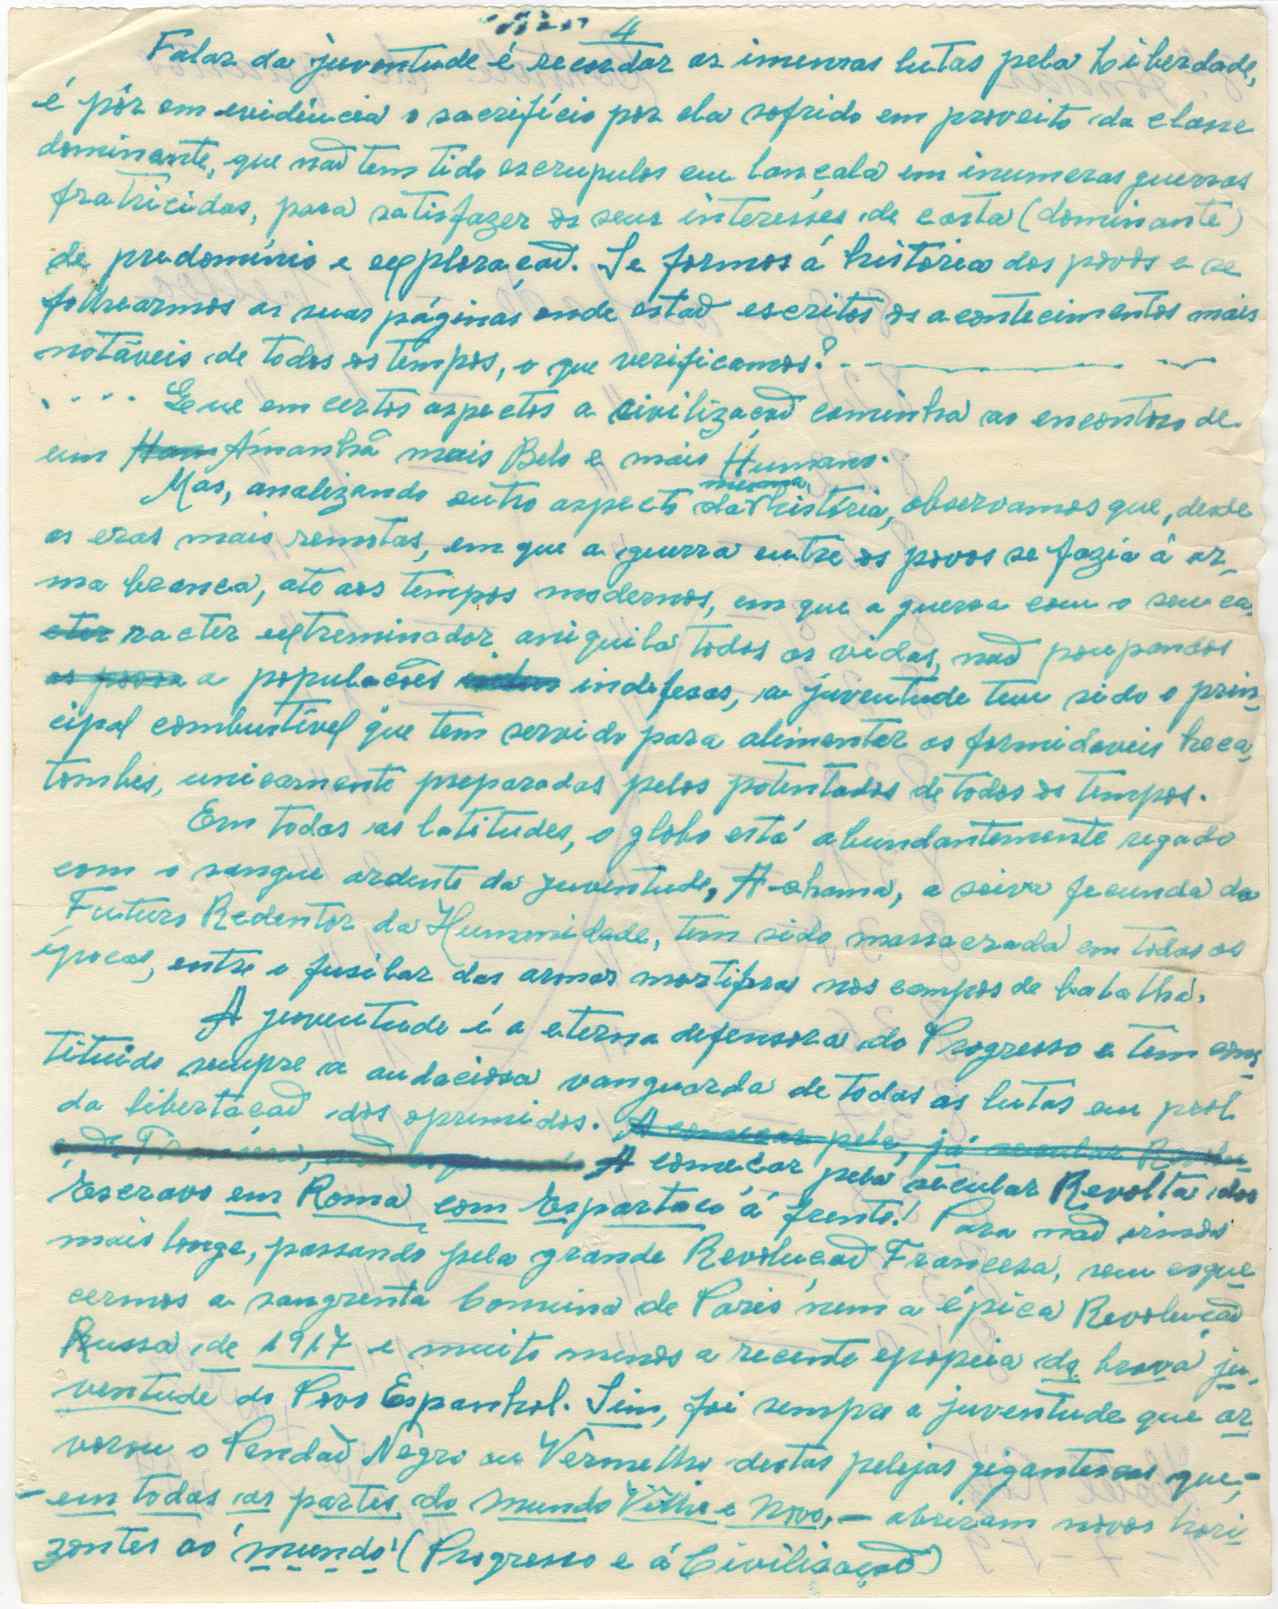 4
Falar da juventude é recordar as imensas lutas pela Liberdade,
é pôr em evidência o sacrifício por ela sofrido em proveito da classe
dominante, que naõ tem tido escrupulos em lançala em inumeras guerras
fratricidas, para satisfazer os seus interesses de casta (dominante)
de predomínio e exploracaõ. Se formos á história dos povos e se
folhearmos as suas páginas onde estaõ escritos os acontecimentos mais
notáveis de todos os tempos, o que verificamos?
.... Que em certos aspectos a civilizacaõ caminha ao encontro de
um Amanhã mais Belo e mais Humano.
Mas, analizando outro aspecto da mesma história, observamos que, desde
as eras mais remotas, em que a guerra entre os povos se fazia á ar-
ma branca, até aos tempos modernos, em que a guerra com o seu ca-
racter extreminador aniquila todas as vidas, naõ poupando
a populacões indefesas, a juventude tem sido o prin-
cipal combustível que tem servido para alimentar as formidáveis heca-
tombes, unicamente preparadas pelos potentados de todos os tempos.
Em todas as latitudes, o globo está abundantemente regado
com o sangue ardente da juventude, A chama, a seiva fecunda do
Futuro Redentor da Humanidade, tem sido massacrada em todas as
épocas, entre o fusilar das armas mortiferas nos campos de batalha.
A juventude é a eterna defensora do Progresso e tem cons-
tituido sempre a audaciosa vanguarda de todas as lutas em prol
da libertacaõ dos oprimidos. A comecar pela, já secular
A comecar pela secular Revolta dos
Escravos em Roma com Espartaco á frente! Para naõ irmos
mais longe, passando pela grande Revolucaõ Francesa, sem esque
cermos a sangrenta Comuna de Paris nem a épica Revolucaõ
Russa de 1917 e muito menos a recente epopeia da brava ju-
ventude do Povo Espanhol. Sim, foi sempre a juventude que ar
vorou o Pendaõ Negro ou Vermelho destas pelejas gigantescas que,-
-em todas as partes do mundo Velho e Novo,- abriram novos hori
zontes ao mundo (Progresso e á Civilisaçaõ)